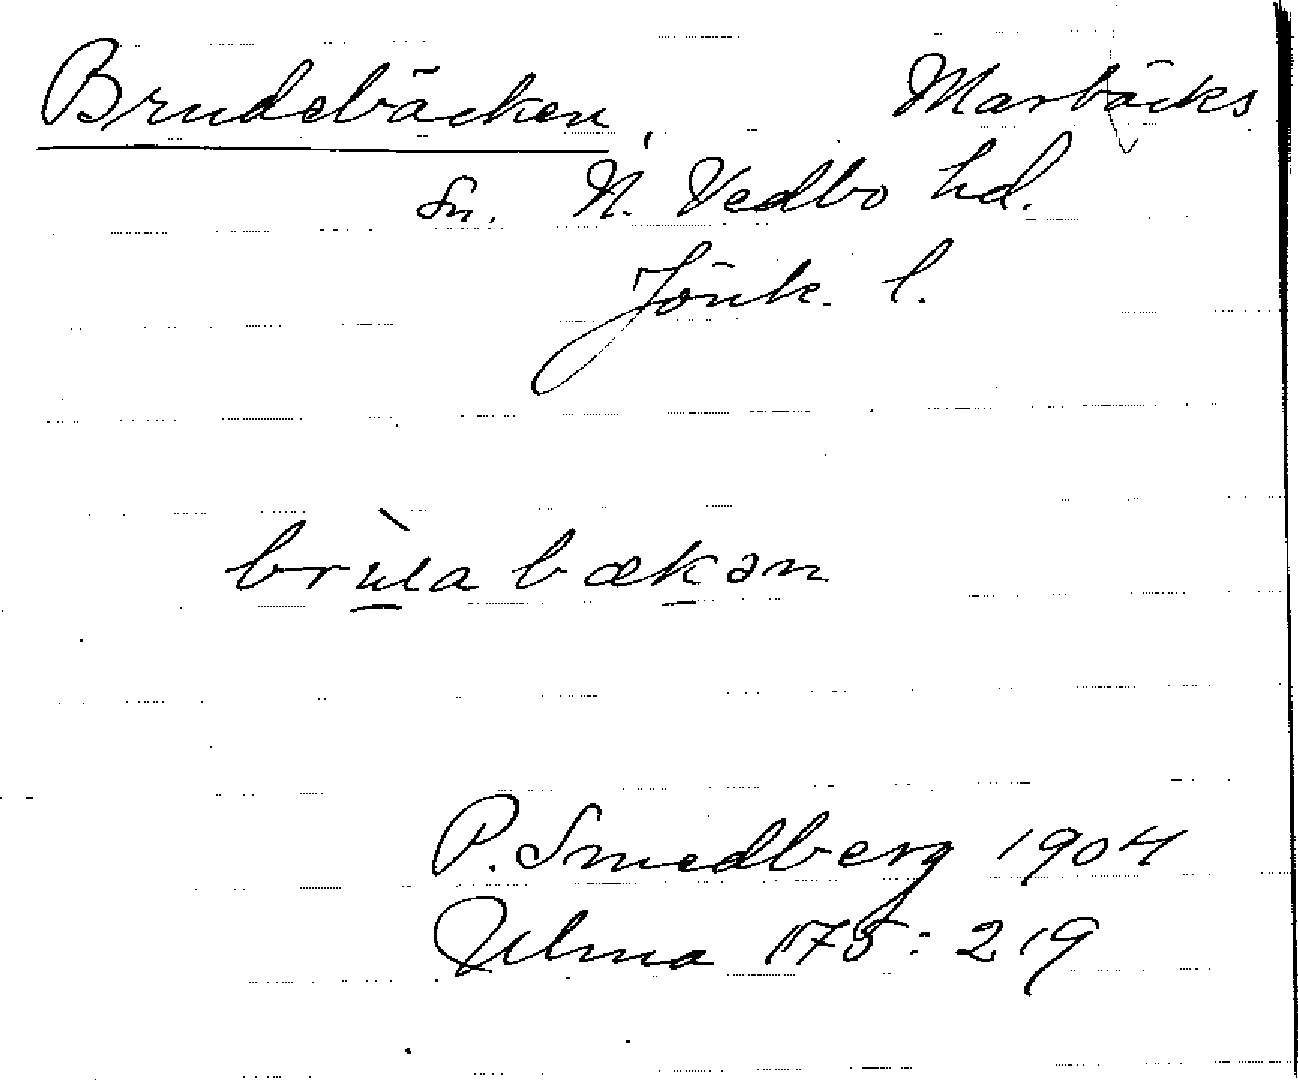 Brudebäcken, Marbäcks
Sn. N. Vedbo hd.
Jönk. l.
brùa bækən
P. Smedberg 1904
Ulma 175:219